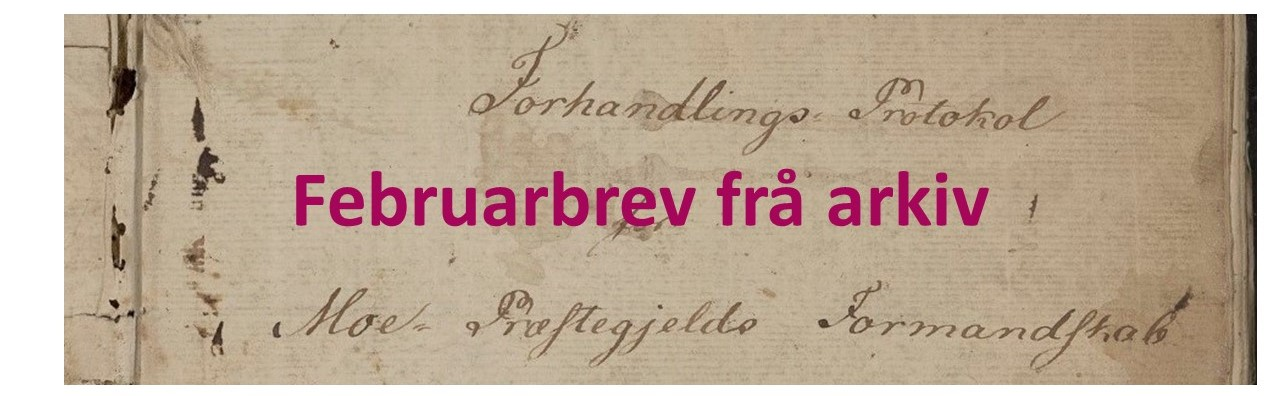 Forhandlings- Protokol
Februarbrev frå arkiv
for
Moe- Præstegjelds Formandskab